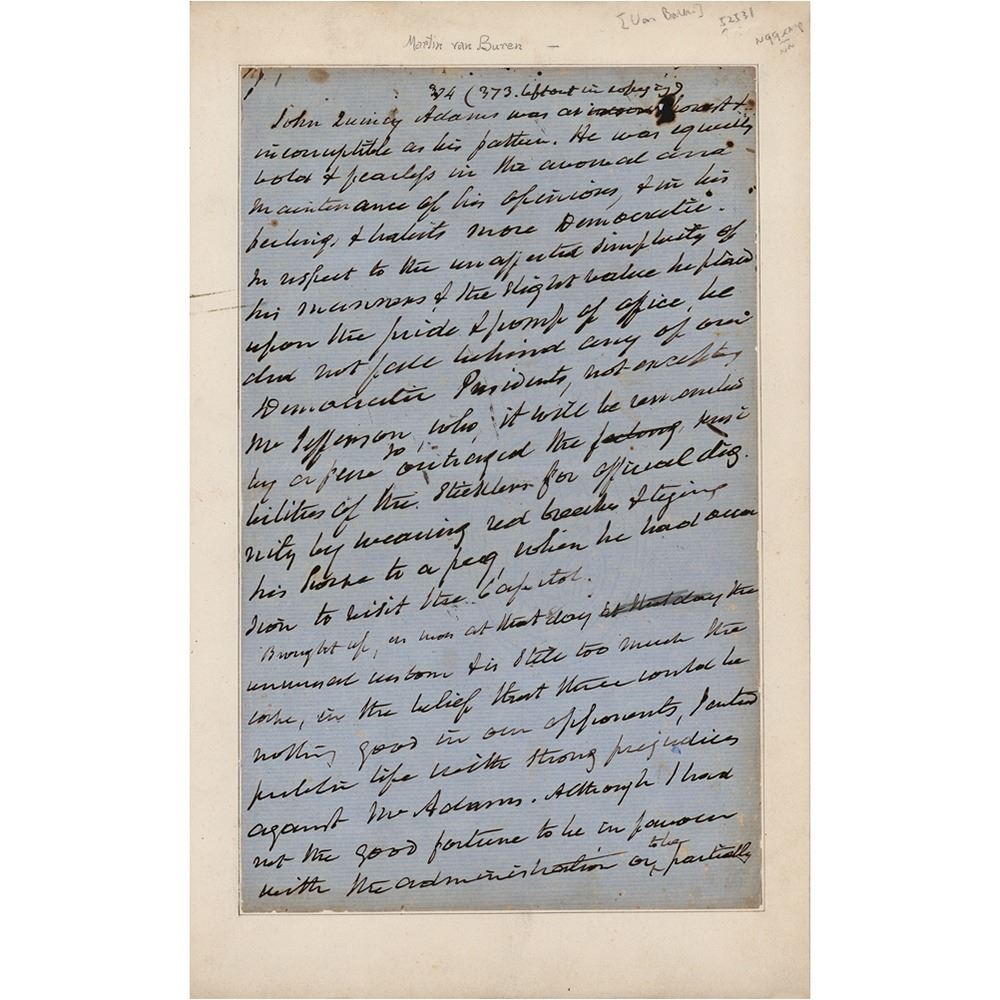 [Van Buren]
52531
Martin van Buren —
374 (373. left out in copying)
John Quincy Adams was as honest &
incorruptible as his father. He was equally
bold & fearless in the avowal and
maintenance of his opinions, & in his
feelings & habits more Democratic.
In respect to the unaffected simplicity of
his manners & the slight value he placed
upon the pride & pomp of office, he
did not fall behind any of our
Democratic Presidents, not excepting
Mr Jefferson, who, it will be remembered
by a few, so outraged the feelings sensi
bilities of the Sticklers for official dig-
nity by wearing red breeches & tying
his horse to a peg, when he had occa
sion to visit the Capitol.
Brought up, as was at that day at that day the
universal custom & is still too much the
case, in the belief that there could be
nothing good in our opponents, I entered
public life with strong prejudices
against Mr Adams. Although I had
not the good fortune to be in favour
with the administration or to be partially